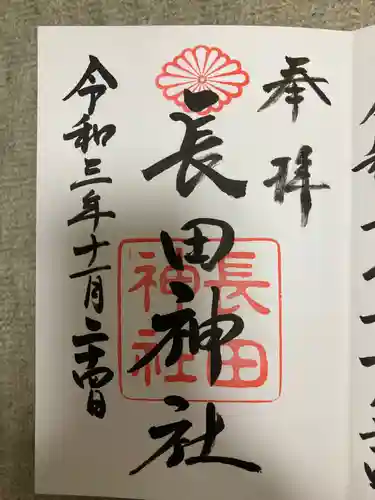 奉拝
長田神社
長田
神社
令和三年十一月二十四日